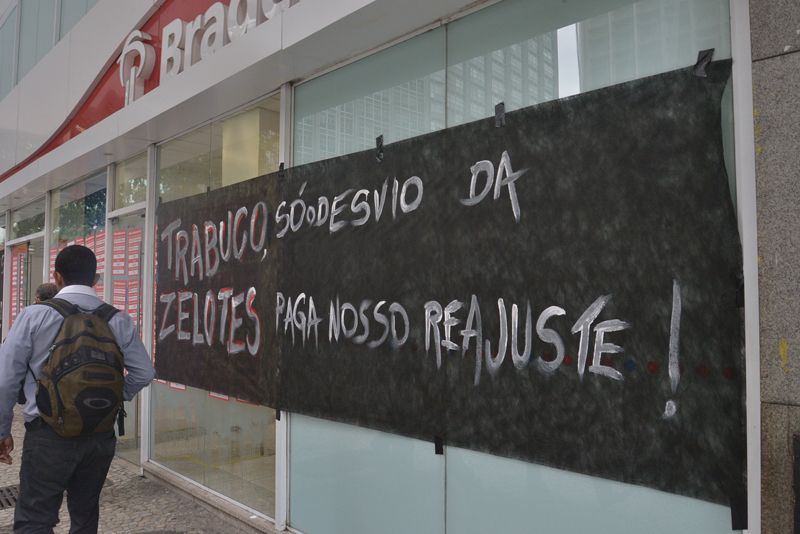 Brade
TRABUCO, SÓ O DESVIO DA
ZELOTES PAGA NOSSO REAJUSTE!